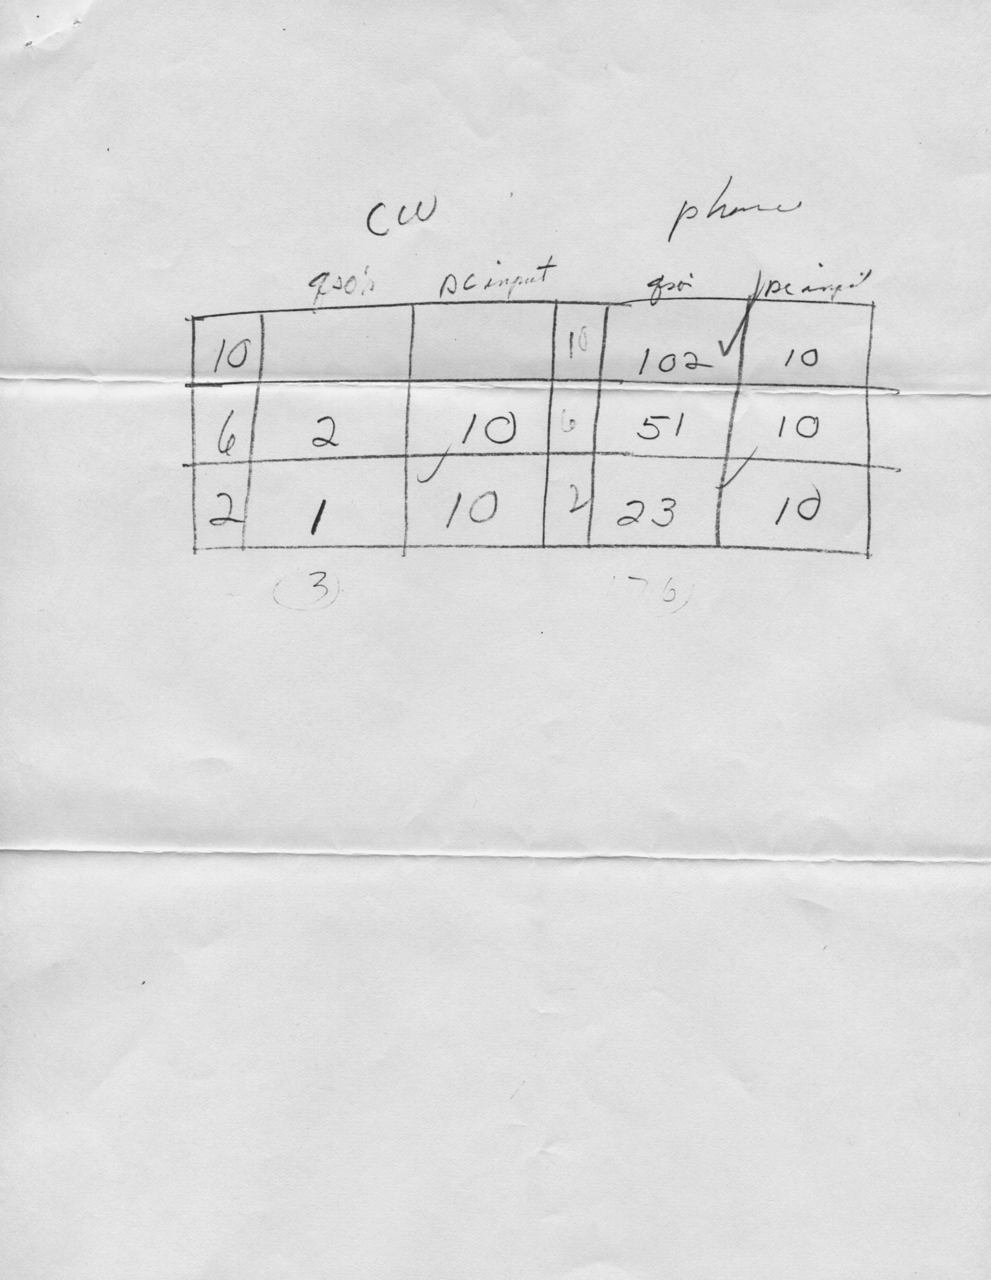 CW phone
qso's DC input qso's DC input
10 10 102 ✓ 10
6 2 10 6 51 10
2 1 10 2 23 10
3 176